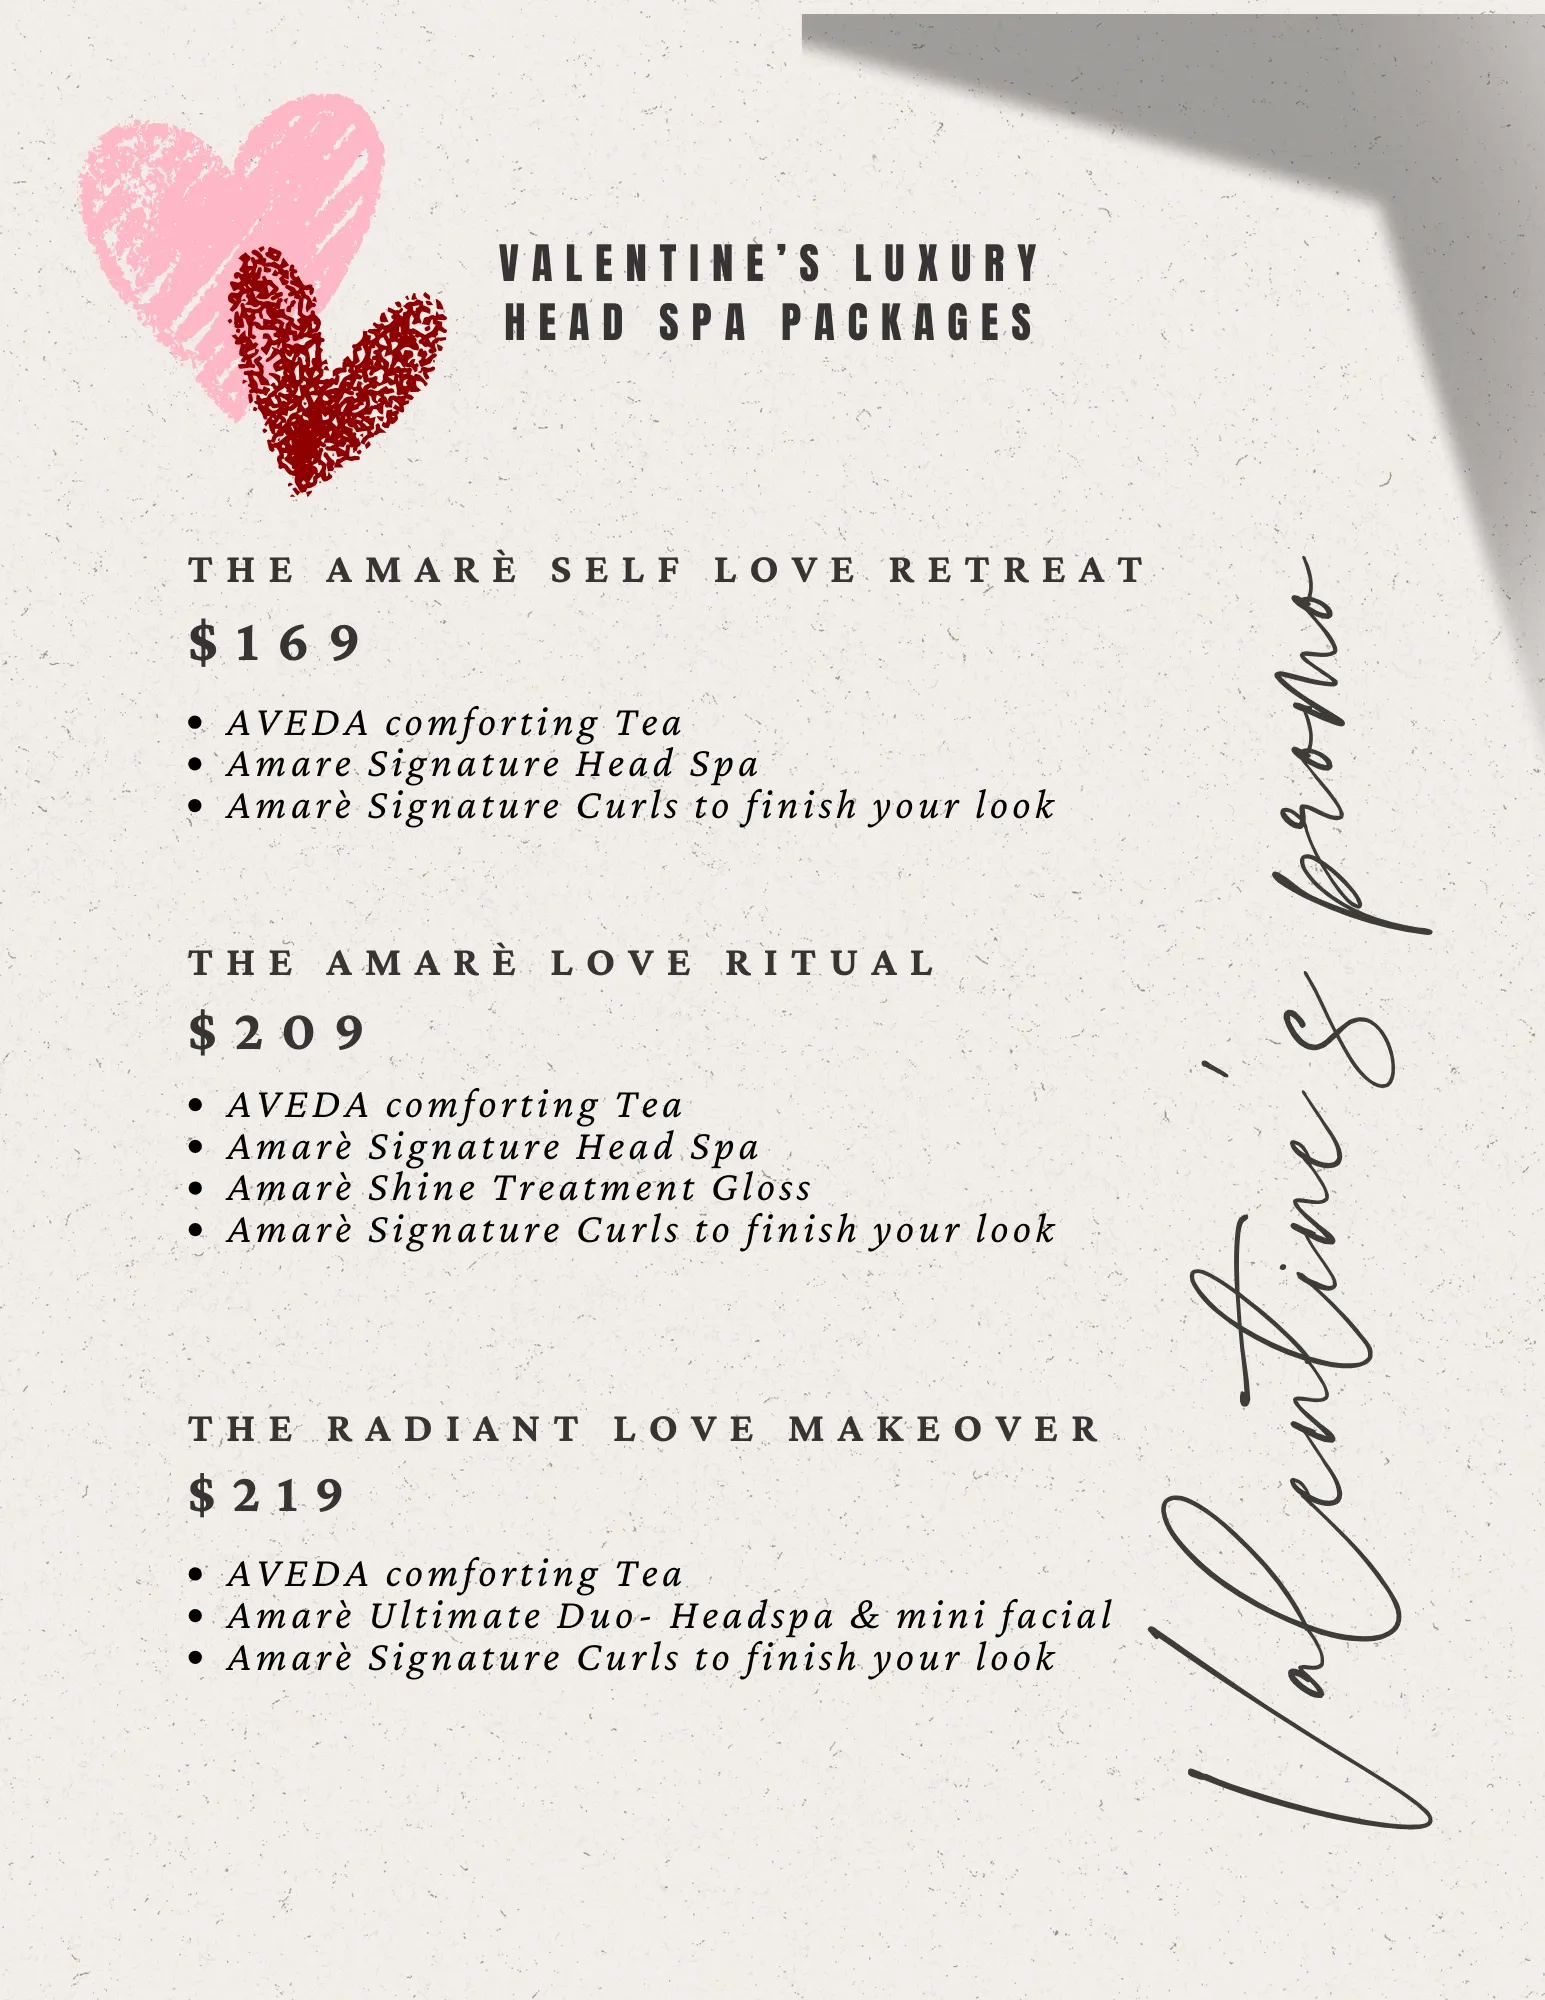 VALENTINE’S LUXURY
HEAD SPA PACKAGES
THE AMARÈ SELF LOVE RETREAT
$169
• AVEDA comforting Tea
• Amare Signature Head Spa
• Amarè Signature Curls to finish your look
THE AMARÈ LOVE RITUAL
$209
• AVEDA comforting Tea
• Amarè Signature Head Spa
• Amarè Shine Treatment Gloss
• Amarè Signature Curls to finish your look
THE RADIANT LOVE MAKEOVER
$219
• AVEDA comforting Tea
• Amarè Ultimate Duo- Headspa & mini facial
• Amarè Signature Curls to finish your look
Valentine's promo